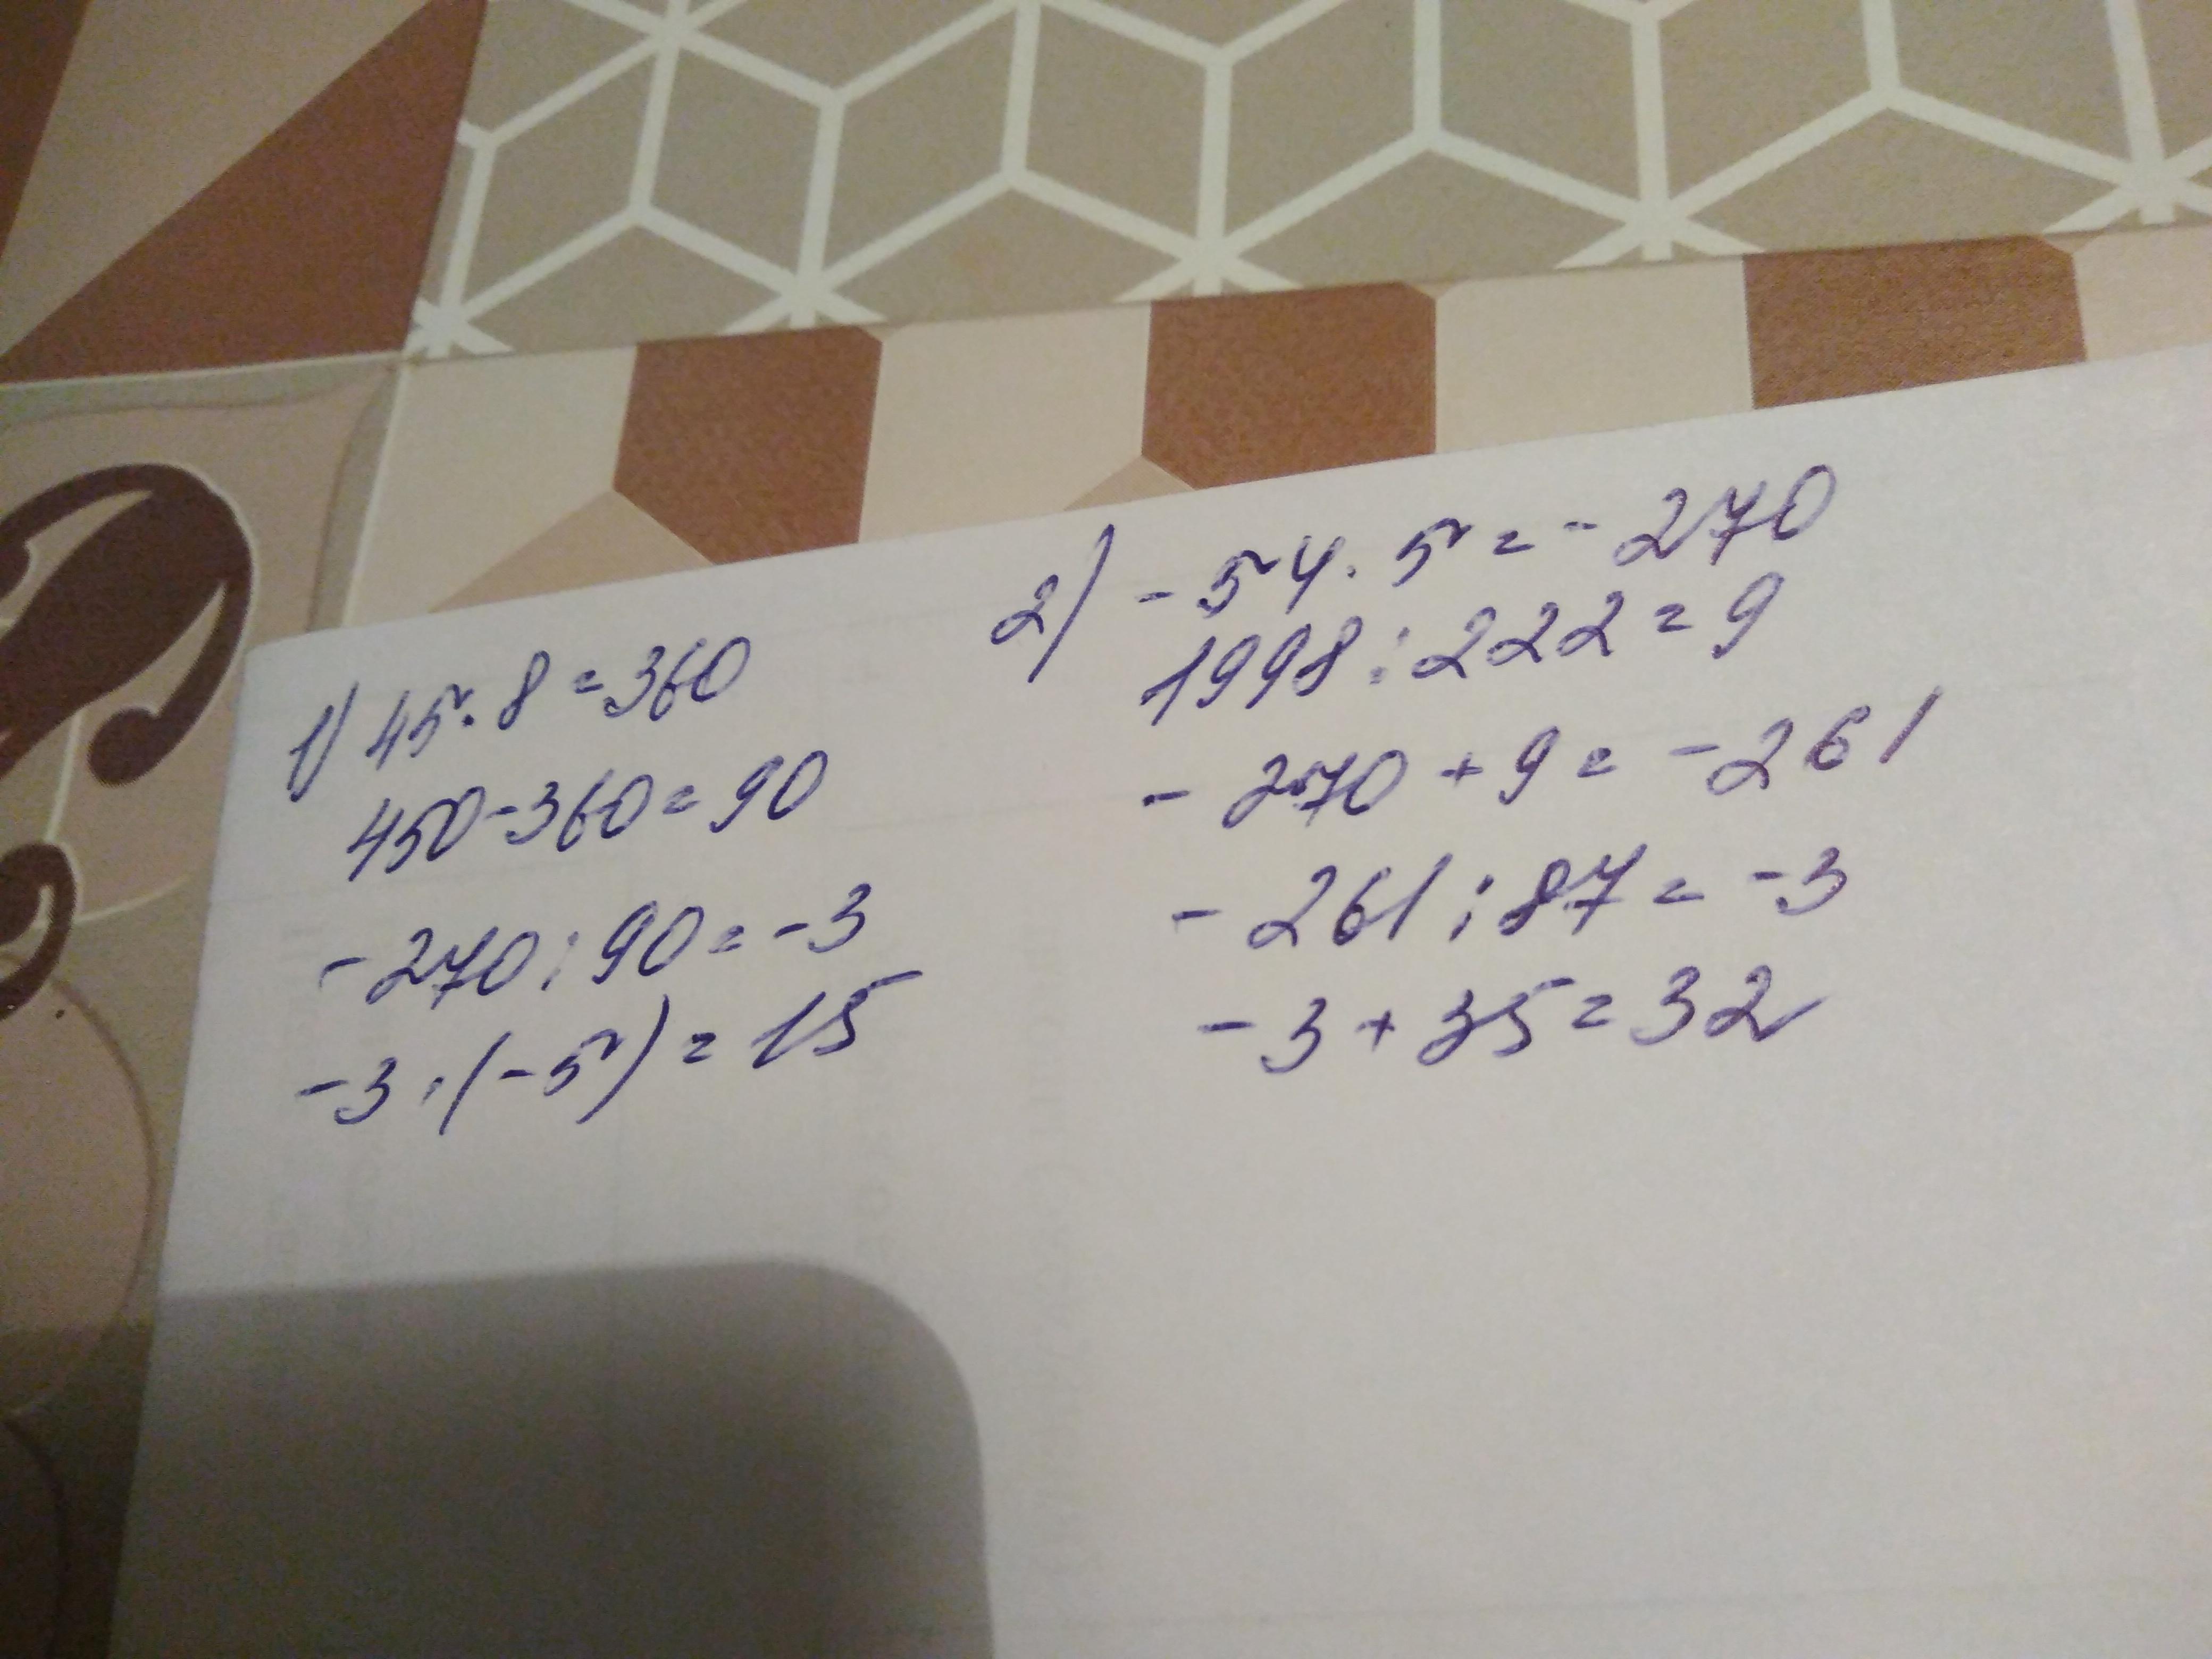 1) 45·8=360
450-360=90
-270:90=-3
-3·(-5)=15
2) -54·5=-270
1998:222=9
-270+9=-261
-261:87=-3
-3+35=32